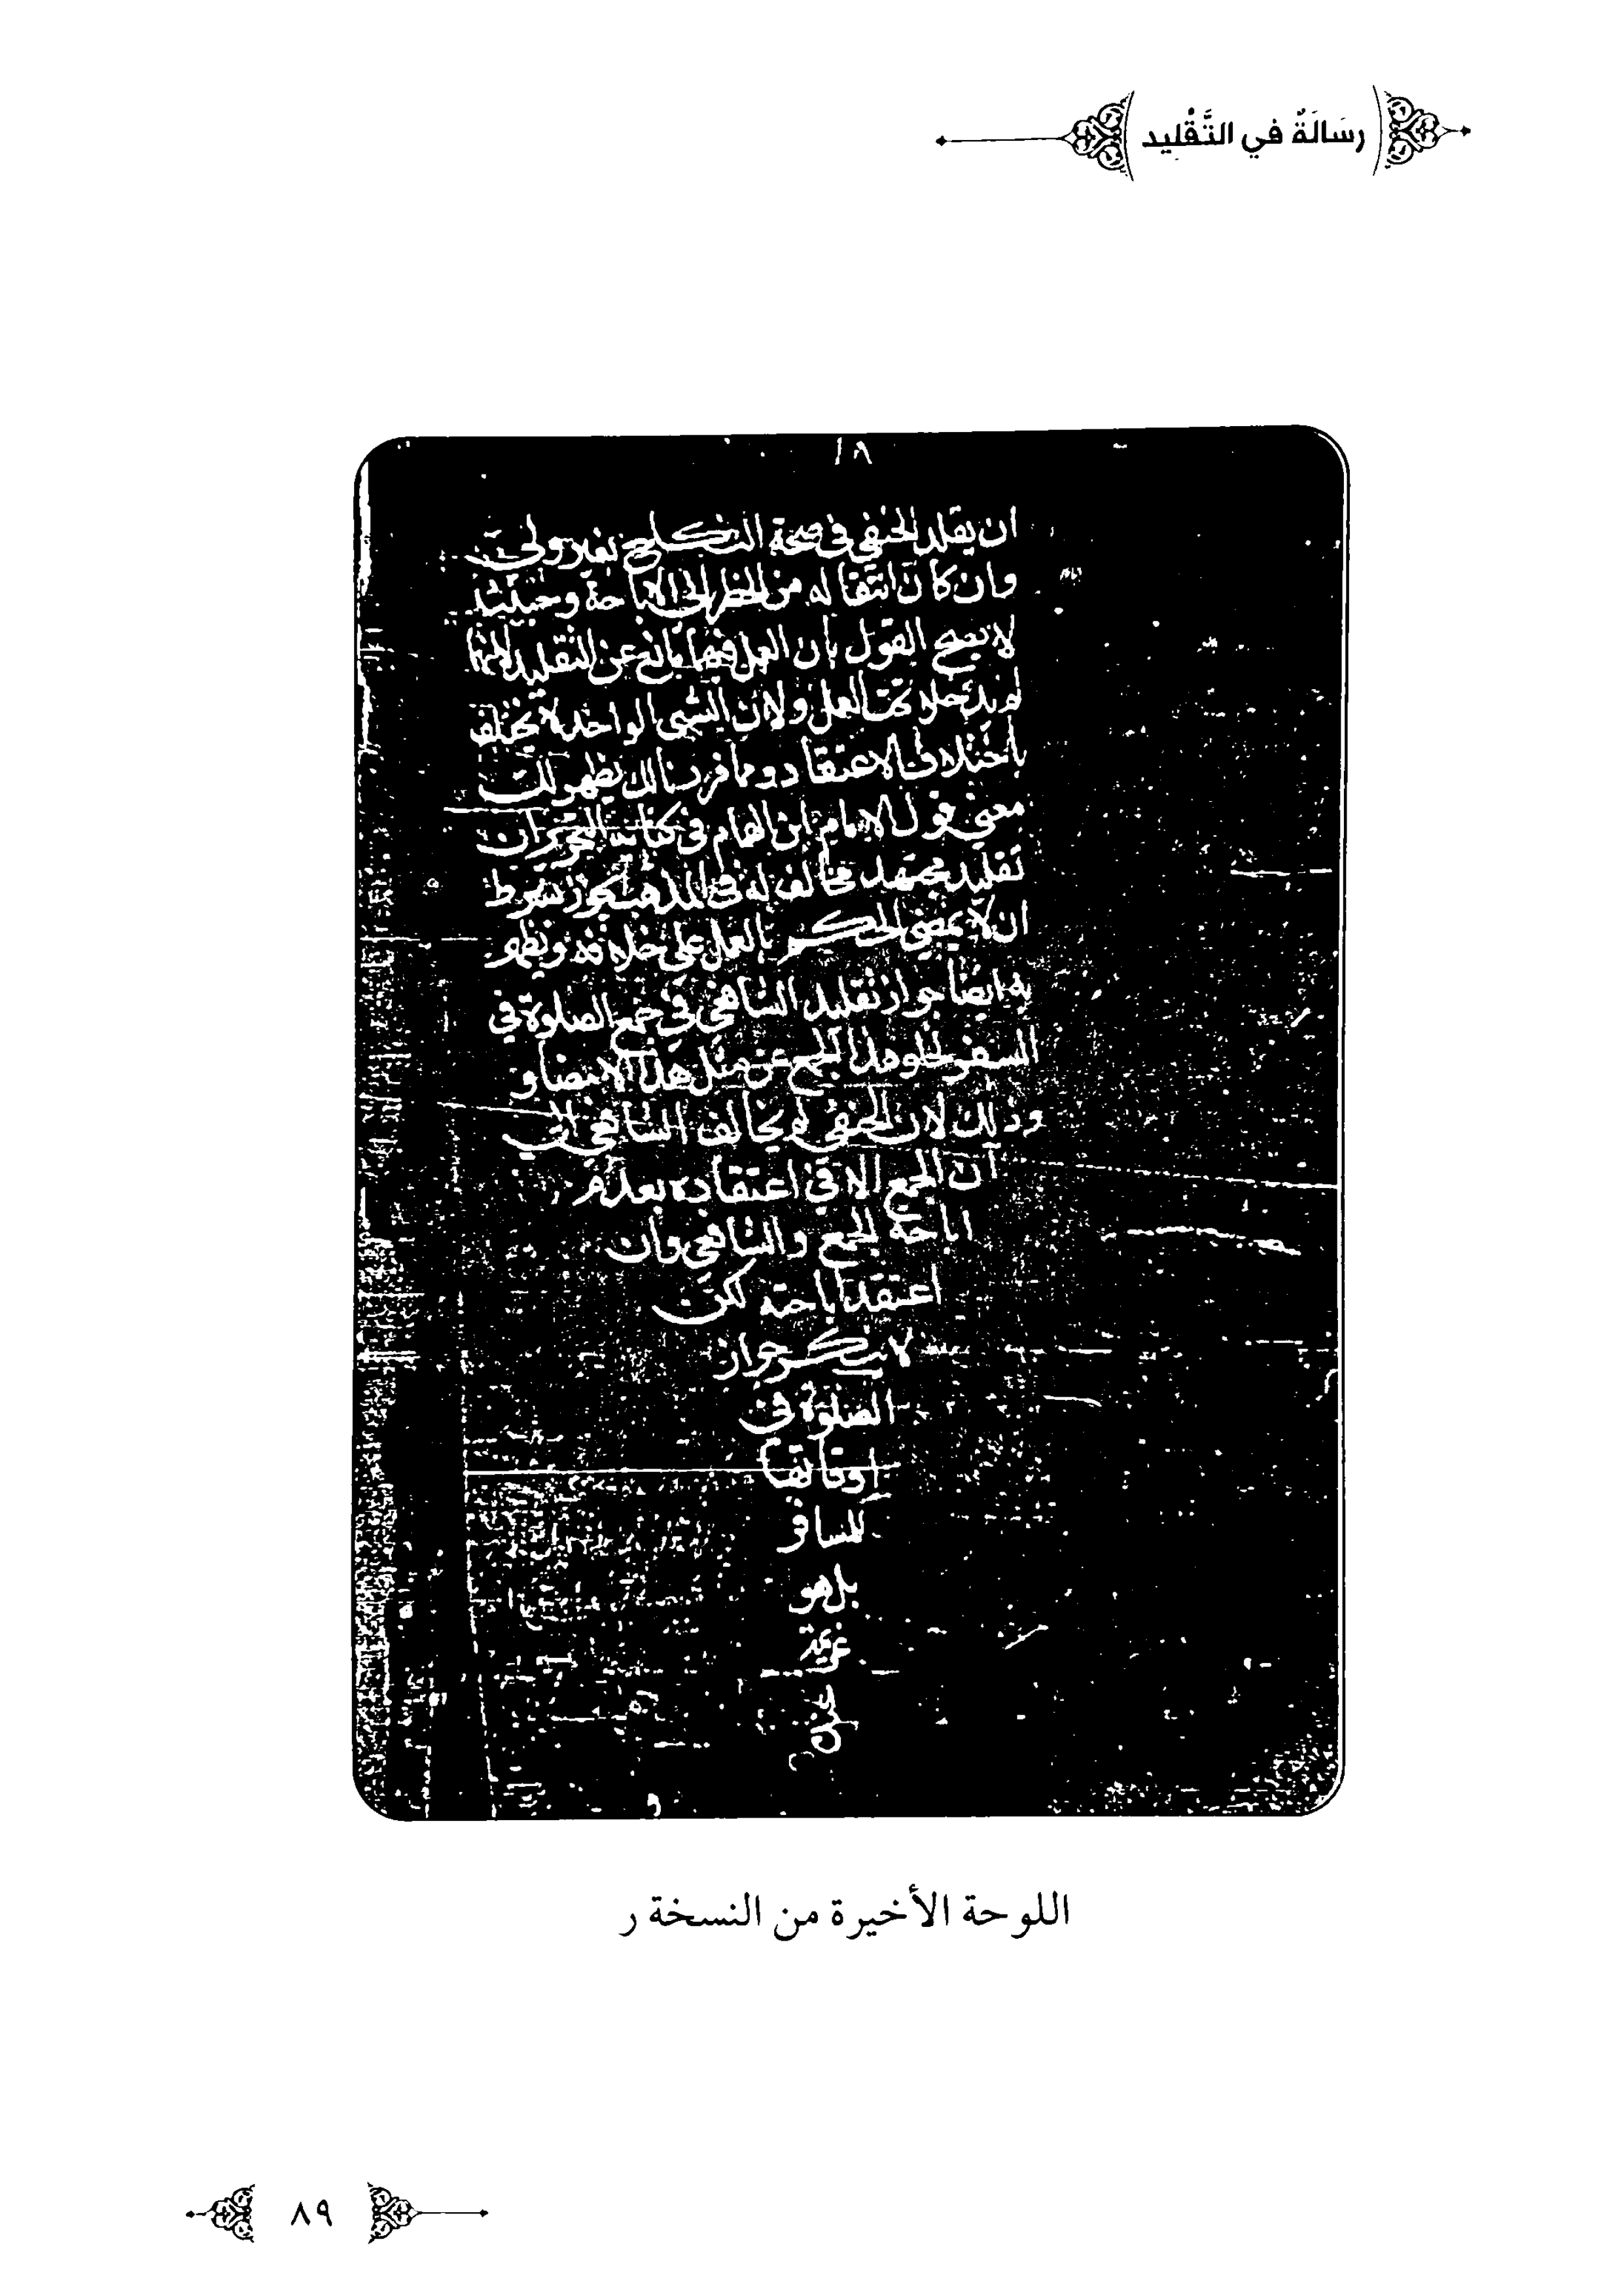 رسَالَةٌ في التَّقْليد
ان يقلد الحنفي في صحة النكاح بغير ولي
وان كان انتقاله من الحظر الى الاباحة وحينئذ
لا يصح القول بان العمل فيها مانع عن التقليد لانها
لم يدخلا تحت العمل ولان الشيى الواحد لا يختلف
باختلاف الاعتقاد ومما قررنا لك يظهر لك
معنى قول الامام ابن الهمام في كتابه التحرير ان
تقليد مجتهد مخالف له في المذهب يجوز بشرط
ان لا يمضي الحكم بالعمل على خلافه ويظهر
به ايضا جواز تقليد الشافعي في جمع الصلوة في
السفر لخلو هذا الجمع عن مثل هذا الامضا و
وذلك لان الحنفي لم يخالف الشافعي الى
آن الجمع الا في اعتقاده بعدم
اباحة الجمع والشافعي وان
اعتقد اباحته لكن
لا ينكر جواز
الصلوة في
اوقاتها
للمسافر
بل هو
عزيمة
اللوحة الأخيرة من النسخة ر
٨٩